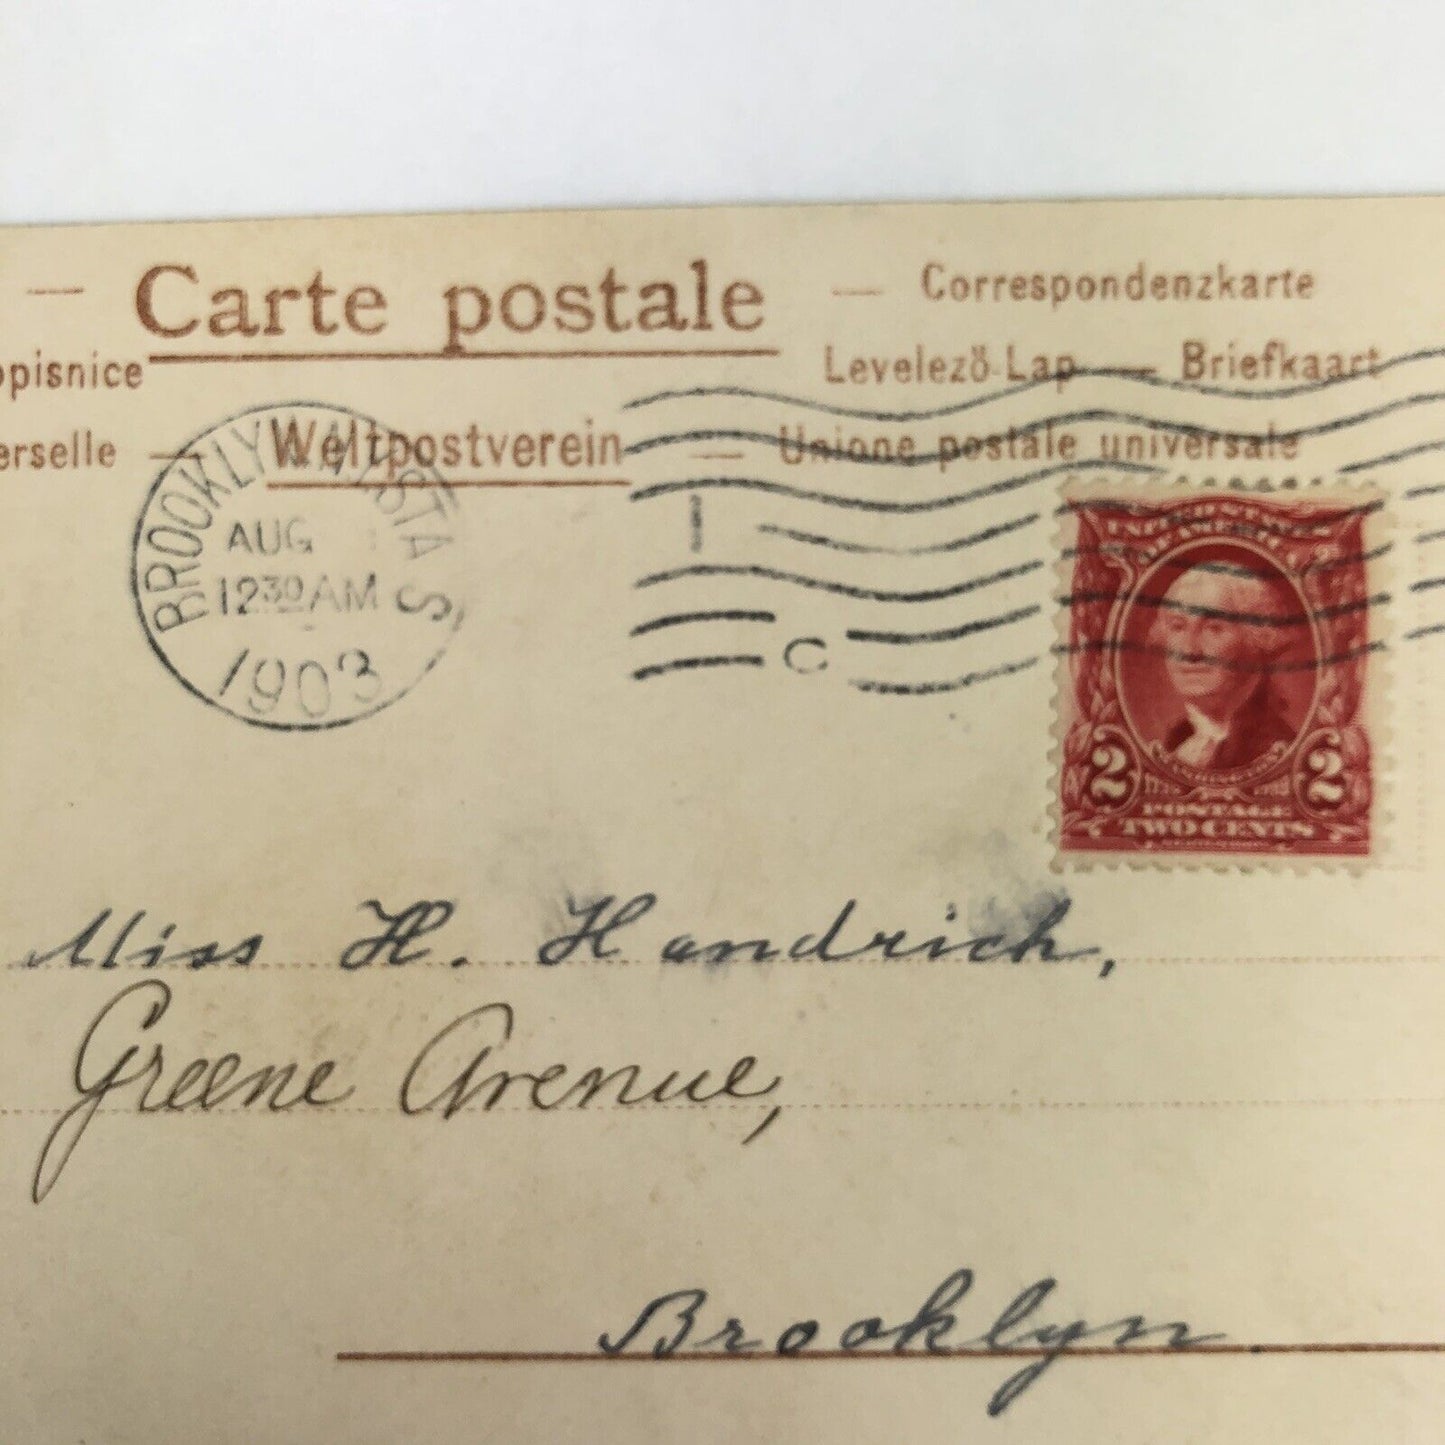 — Carte postale — Correspondenzkarte
opisnice Levelező-Lap — Briefkaart
erselle — Weltpostverein — Unione postale universale
BROOKLYN, N.Y. STA S
AUG
12 30 AM
1903
1
C
UNITED STATES
OF AMERICA
WASHINGTON
2 2
POSTAGE
TWO CENTS
SERIES 1902
Miss H. Handrich,
Greene Avenue,
Brooklyn.